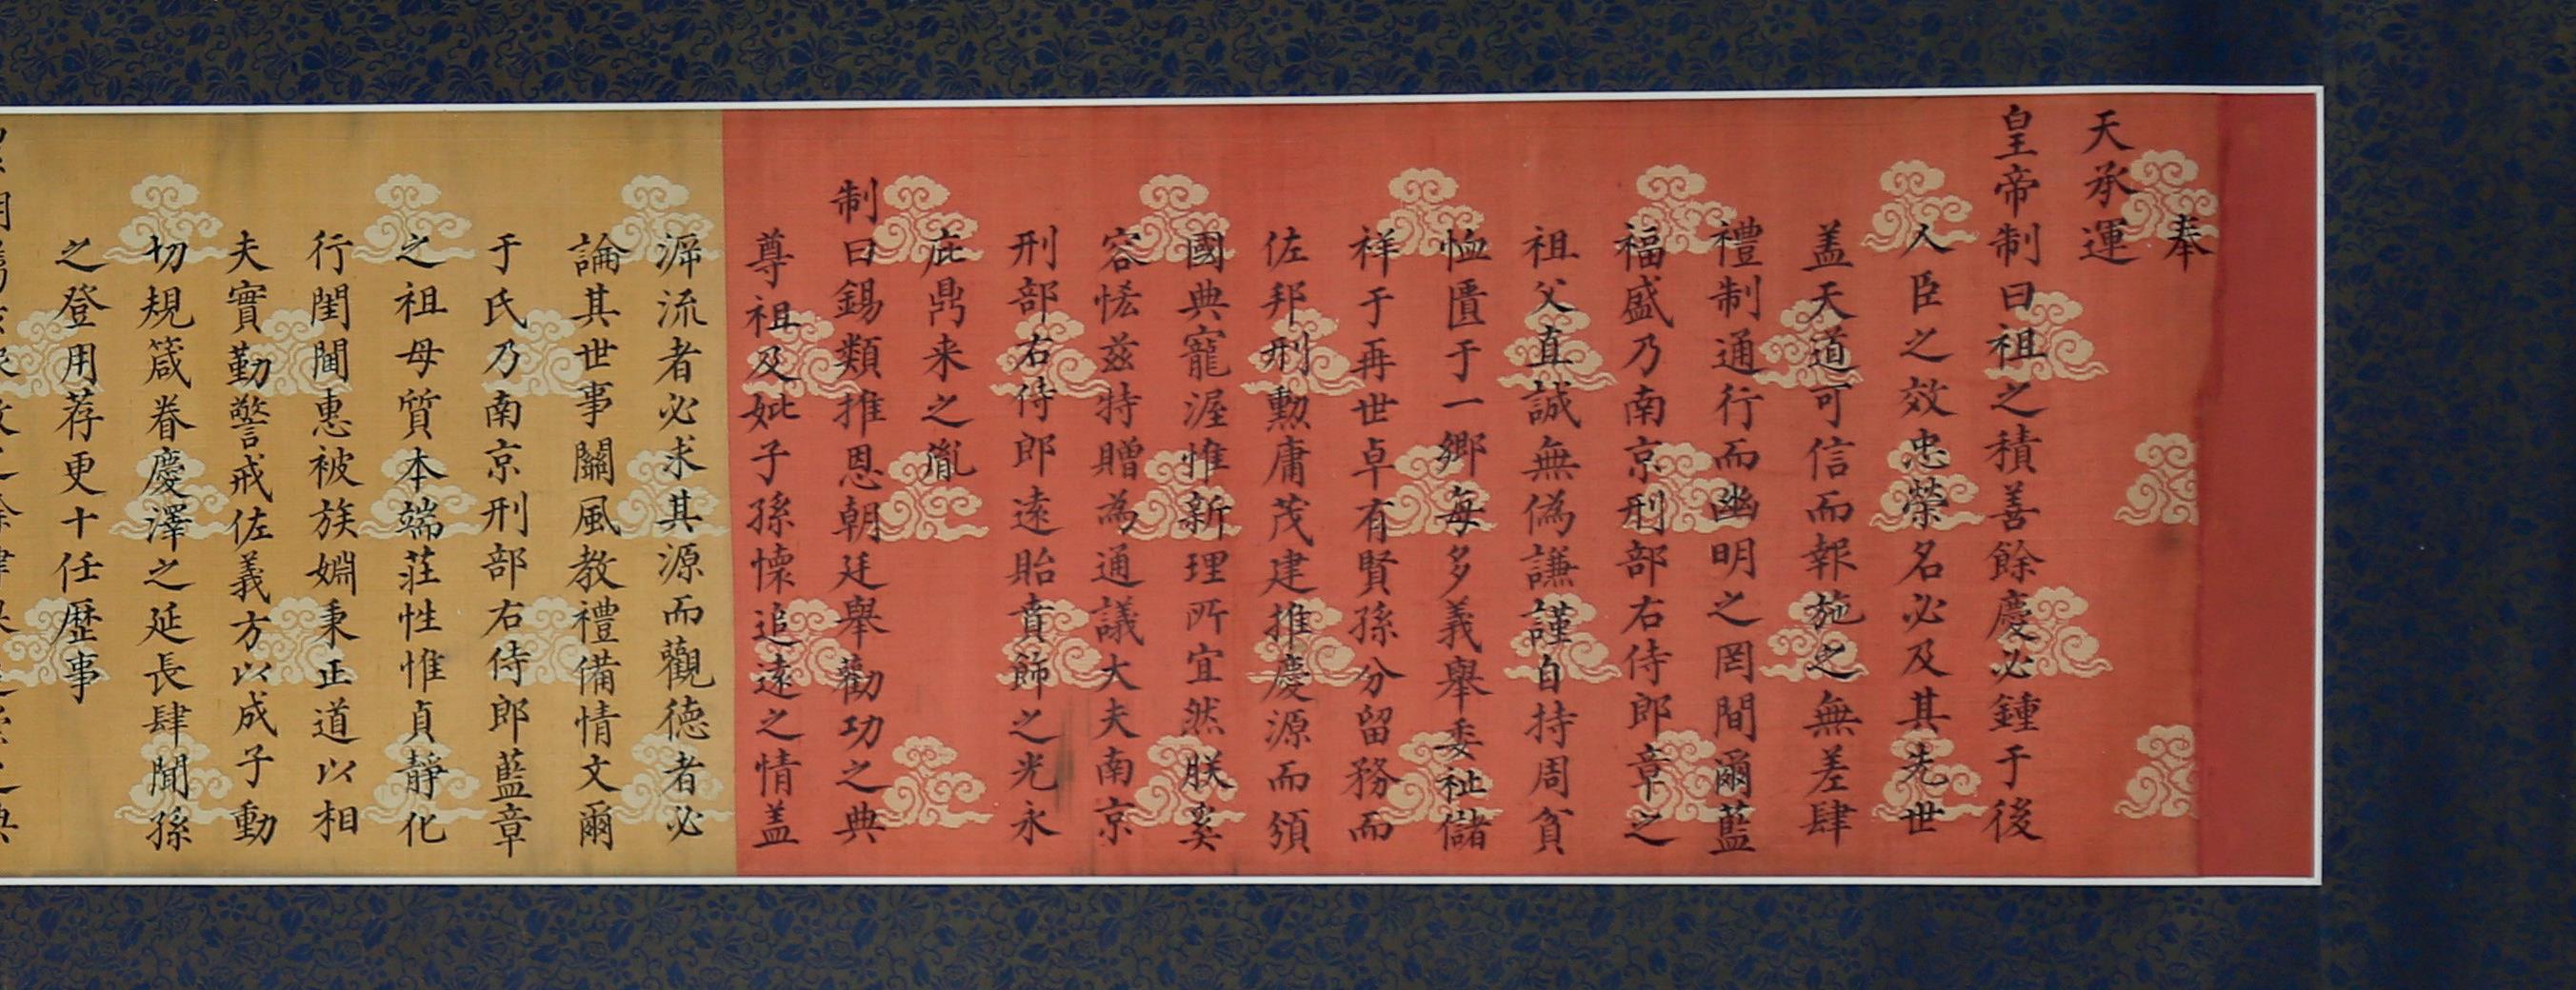 奉
天承運
皇帝制曰祖之積善餘慶必鍾于後
人臣之效忠榮名必及其先世
盖天道可信而報施之無差肆
禮制通行而幽明之罔間爾藍
福盛乃南京刑部右侍郎章之
祖父直誠無偽謙謹自持周貧
恤匱于一鄉每多義舉委祉儲
祥于再世卓有賢孫分留務而
佐邦刑勲庸茂建推慶源而頒
國典寵渥惟新理所宜然朕奚
容恡兹特贈為通議大夫南京
刑部右侍郎逺貽賁飾之光永
庇鼎来之胤
制曰錫類推恩朝廷舉勸功之典
尊祖及妣子孫懷追逺之情盖
泝流者必求其源而觀德者必
論其世事關風教禮備情文爾
于氏乃南京刑部右侍郎藍章
之祖母質本端莊性惟貞靜化
行閨閫惠被族婣秉正道以相
夫實勤警戒佐義方以成子動
切規箴眷慶澤之延長肆聞孫
之登用荐更十任歷事